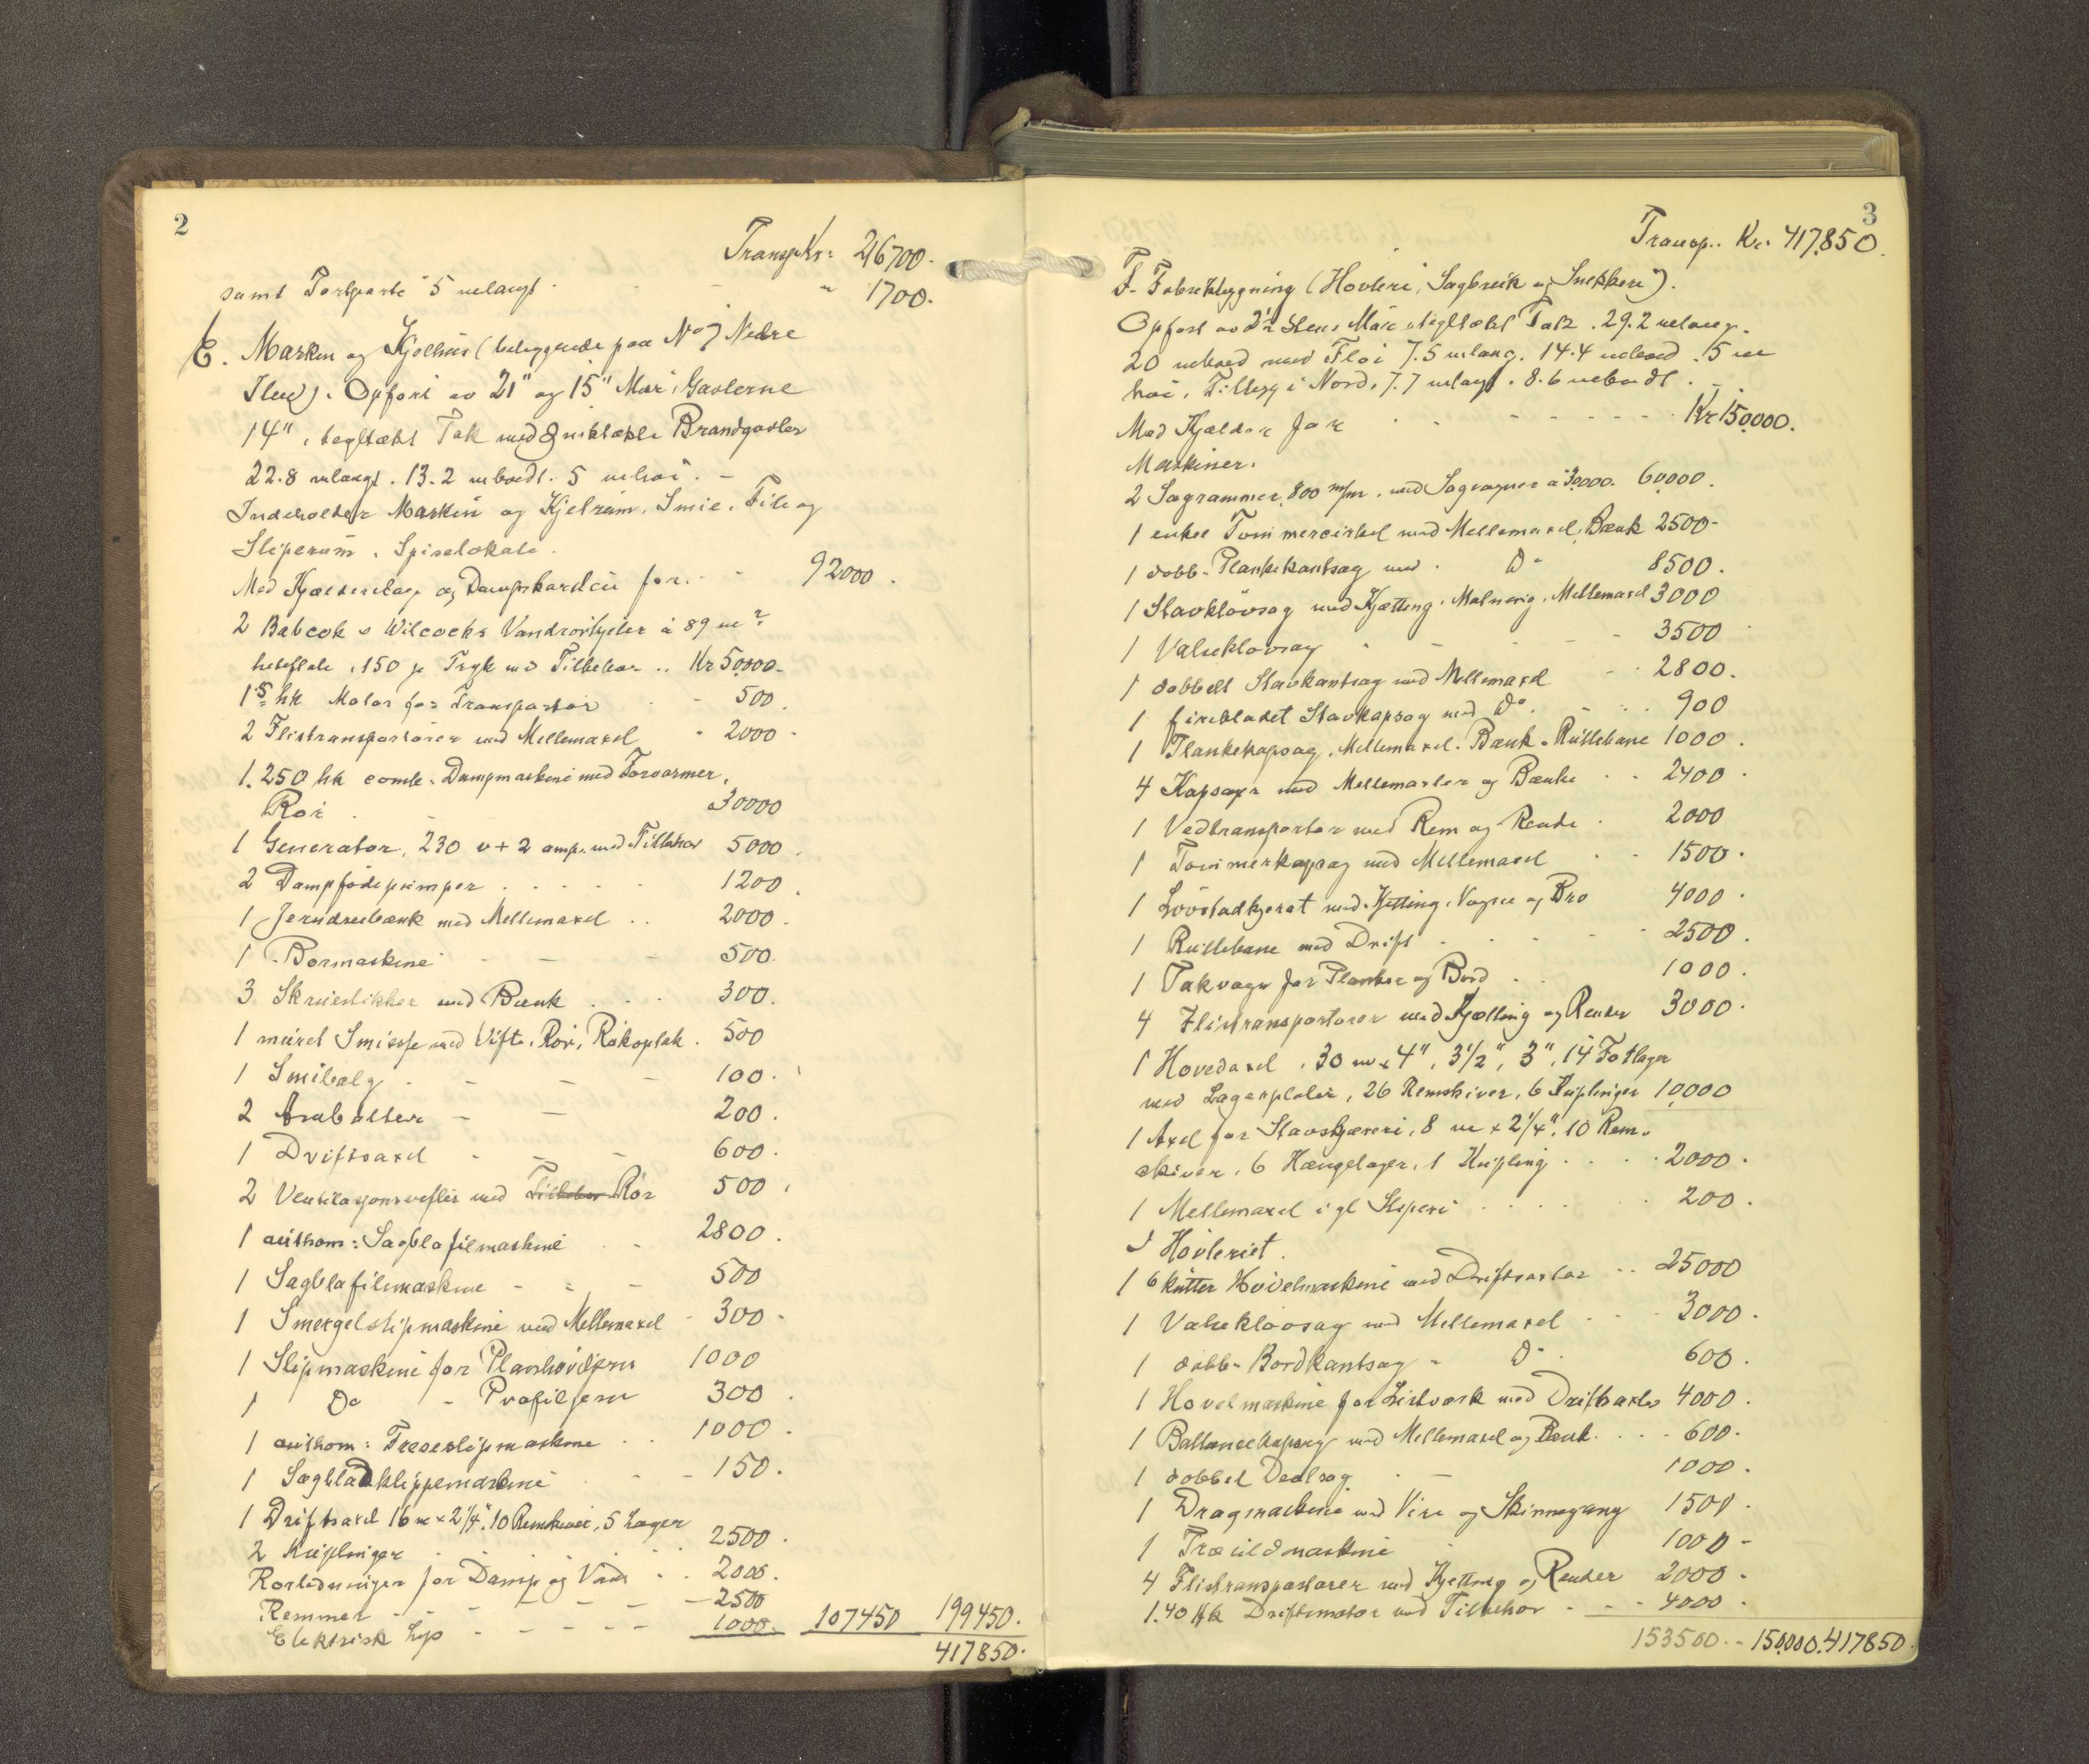 2
Transp. Kr. 216700.
samt Portparti 5 m langt . - " 1700.
E. Maskin og Kjelhus (beliggende paa No 7 Nedre
Ilen). Opført av 21" og 15" Mur, Gavlerne
14", tegltækt Tak med Brandgavler
22.8 m langt. 13.2 m bredt. 5 m høi. -
Indeholder Maskin og Kjelrum. Smie. File og
Sliperum, Spiselokale.
Med Kjælderetage og Dampskorsten for. - - 92000.
2 Babcok & Wilcocks Vandrørskjeler à 89 m2
heteflate, 150 p Tryk med Tilbehør .. Kr 50000.-
1 5 hk Motor for Transportør - - 500.
2 Flistransportører med Mellemaxel - 2000 -
1. 250 hk comb. Dampmaskine med Forvarmer,
Rør . - 30000
1 Generator, 230 v + 2 amp. med Tilbehør 5000.
2 Dampfødepumper . . . . . 1200.
1 Jerndreiebænk med Mellemaxel . . 2000.
1 Bormaskine - - - 500.
3 Skruestikker med Bænk . . . 300.
1 muret Smiesse med Vifte, Rør, Røkoptak. 500
1 Smibelg . - - - 100.
2 Ambolter - - 200.
1 Driftsaxel - - - 600.
2 Ventilasjonsvifter med Tilbehør Rør 500.
1 authom: Sagbladfilmaskine . - 2800.
1 Sagbladfilmaskine - - - 500
1 Smergelslipmaskine med Mellemaxel - 300 -
1 Slipmaskine for Planhøvljern 1000
1 Do - Profiljern 300.
1 authom: Fræseslipmaskine . . 1000.
1 Sagbladklippemaskine . - - 150.
1 Driftsaxel 16 m x 2 1/4", 10 Remskiver, 5 Lager
2 Kuplinger . . . . . 2500.
Rørledninger for Damp og Vand . . 2000.
Remmer - - - - - 2500
Elektrisk Lys - - - - - 1000. 107450 199450.
417850.
3
Transp.. Kr. 417,850.
F. Fabrikbygning (Høvleri, Sagbruk og Snekkeri).
Opført av 2 1/2 Stens Mur, tegltækt Tak. 29.2 m lang.
20 m bred med Fløi 7.5 m lang. 14.4 m bred. 5 m
høi. Tillegg i Nord, 7.7 m langt. 8.6 m bredt.
Med Kjælder for . . - - - - - Kr 150.000.
Maskiner.
2 Sagrammer, 800 m/m. med Sagvogner à 30,000. 60,000.
1 enkel Tømmercirkel med Mellemaxel, Bænk 2500-
1 dobb. Plankekantsag med . Do 8500.
1 Stavkløvsag med Kjætting, Matning, Mellemaxel 3000
1 Valsekløvsag . - - - - 3500
1 dobbelt Stavkantsag med Mellemaxel - 2800.
1 firebladet Stavkapsag med Do. - . . 900
1 Plankekapsag, Mellemaxel. Bænk. Rullebane 1000.
4 Kapsager med Mellemaxler og Bænke . . 2400.
1 Vedtransportør med Rem og Rende . 2000
1 Tømmerkapsag med Mellemaxel . - 1500.
1 med Kjetting, Vogne og Bro 4000.
1 Rullebane med Drift - . . - - 2500.
1 Takvogn for Planker og Bord . . 1000.
4 Flistransportører med Kjætting og Render 3000.
1 Hovedaxel, 30 m x 4", 3 1/2", 3", 14 Fotlager
med Lagerplater, 26 Remskiver, 6 Kuplinger 10,000
1 Axel for Stavskjæreri, 8 m x 2 1/4", 10 Rem-
skiver, 6 Hængelager, 1 Kupling . . . . 2000.
1 Mellemaxel i gl Sliperi . . . . . 200.
I Høvleriet.
1 6 kutter Høvelmaskine med Driftsaxler . . 25000
1 Valsekløvsag med Mellemaxel . . . 3000.
1 dobb. Bordkantsag - Do. 600.
1 Høvelmaskine for Listverk med Driftsaxler 4000.
1 Ballancekapsag med Mellemaxel og Bænk. . . . 600.
1 dobbel Delsag . - 1000.
1 Dragmaskine med Vire og Skinnegang 1500.
1 Træuldmaskine . 1000 -
4 Flistransportører med Kjetting og Render 2000.
1. 40 Hk Driftsmotor med Tilbehør - - - 4000.
153500.- 150,000. 417850.